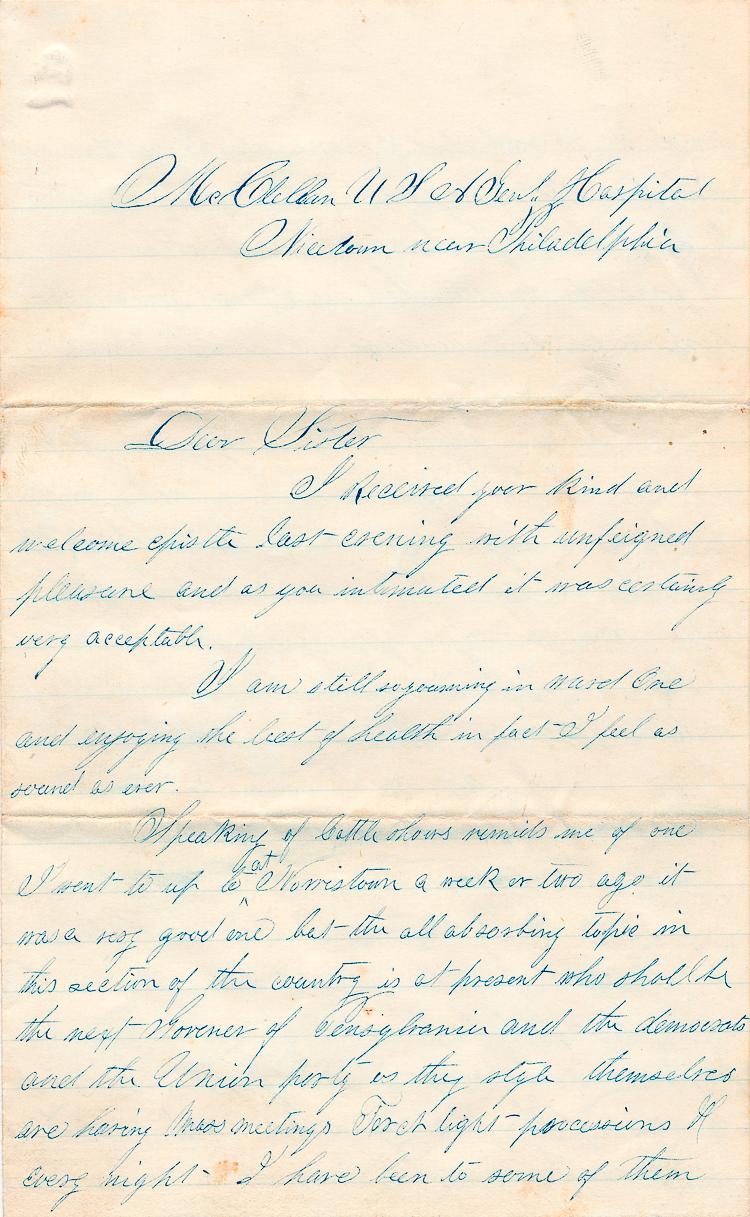 McClellan U S A Genl. Hospital
Nicetown near Philadelphia
Dear Sister
I Received your kind and
welcome epistle last evening with unfeigned
pleasure and as you intimated it was certainly
very acceptable.
I am still sojourning in ward One
and enjoying the best of health in fact I feel as
sound as ever.
Speaking of Cattle shows reminds me of one
I went to up at Norristown a week or two ago it
was a very good one but the all absorbing topic in
this section of the country is at present who shall be
the next Govener of Pensylvania and the democrats
and the Union party as they style themselves
are having Mass meetings Torch light processions &
every night I have been to some of them